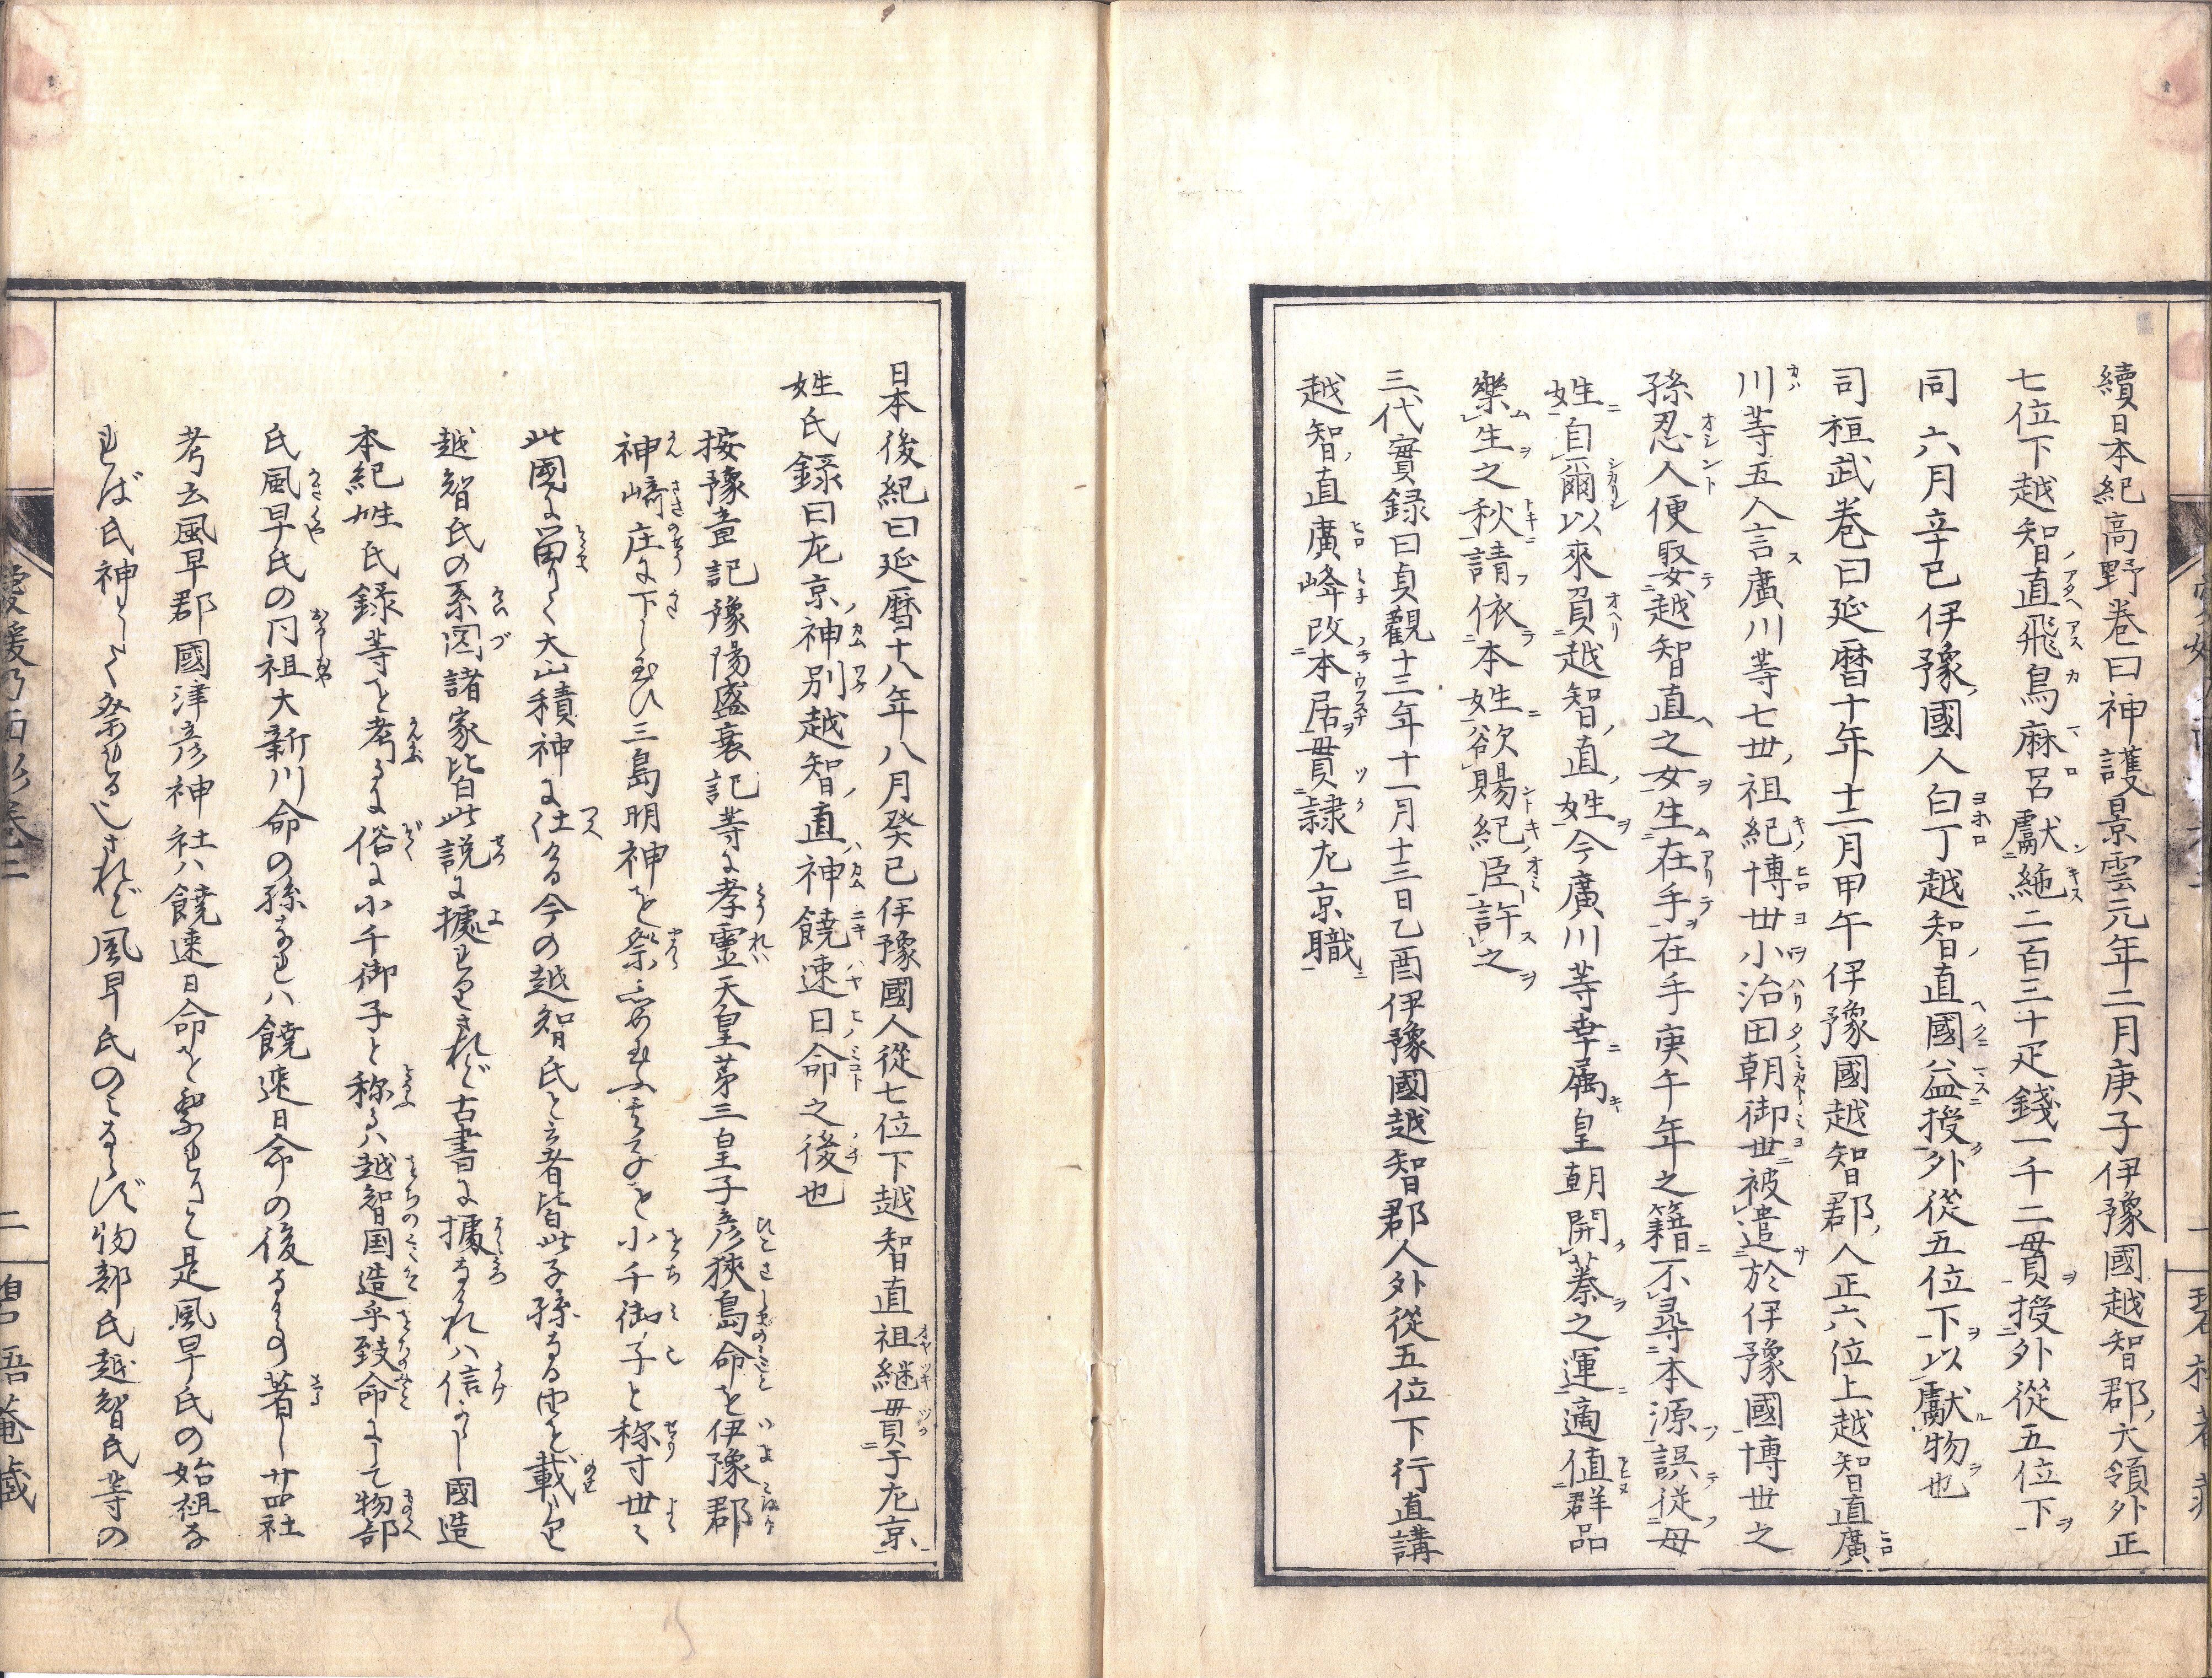 續日本紀高野卷曰神護景雲元年二月庚子伊豫國越智郡大領外正
七位下越智直飛鳥麻呂獻絁二百三十疋錢一千二百貫授外從五位下
同六月辛巳伊豫國人白丁越智直國益授外從五位下以獻物也
司桓武卷曰延曆十年十二月甲午伊豫國越智郡人正六位上越智直廣
川等五人言廣川等七世祖紀博世小治田朝御世被遣於伊豫國博世之
孫忍人便娶越智直之女生在手在手庚午年之籍不尋本源誤從母
姓自爾以來負越智直姓今廣川等幸屬皇朝開蓁之運適值群品
樂生之秋請依本姓欲賜紀臣許之
三代實錄曰貞觀十三年十一月十三日乙酉伊豫國越智郡人外從五位下行直講
越智直廣峰改本居貫隷左京職
日本後紀曰延暦十八年八月癸巳伊豫國人從七位下越智直祖継貫于左京
姓氏録曰左京神別越智直神饒速日命之後也
按豫章記豫陽盛衰記等に孝靈天皇第三皇子彦狹島命を伊豫郡
神﨑庄に下し玉ひ三島明神を祭らしめ玉ふ其子を小千御子と称す世々
此國に留りて大山積神に仕ふる今の越智氏と云者皆此子孫なる由を載たり
越智氏の系図諸家皆此説に據れりされど古書に據なけれハ信かたし國造
本紀姓氏録等を考るに俗に小千御子と称るハ越智国造乎致命にて物部
氏風早氏の同祖大新川命の孫なれハ饒速日命の後なるもの著し廿四社
考云風早郡國津彦神社ハ饒速日命を祭れりと是風早氏の始祖な
れば氏神として祭れる也されど風早氏のミならず物部氏越智氏等の
愛媛乃面影卷二
二
碧梧菴藏